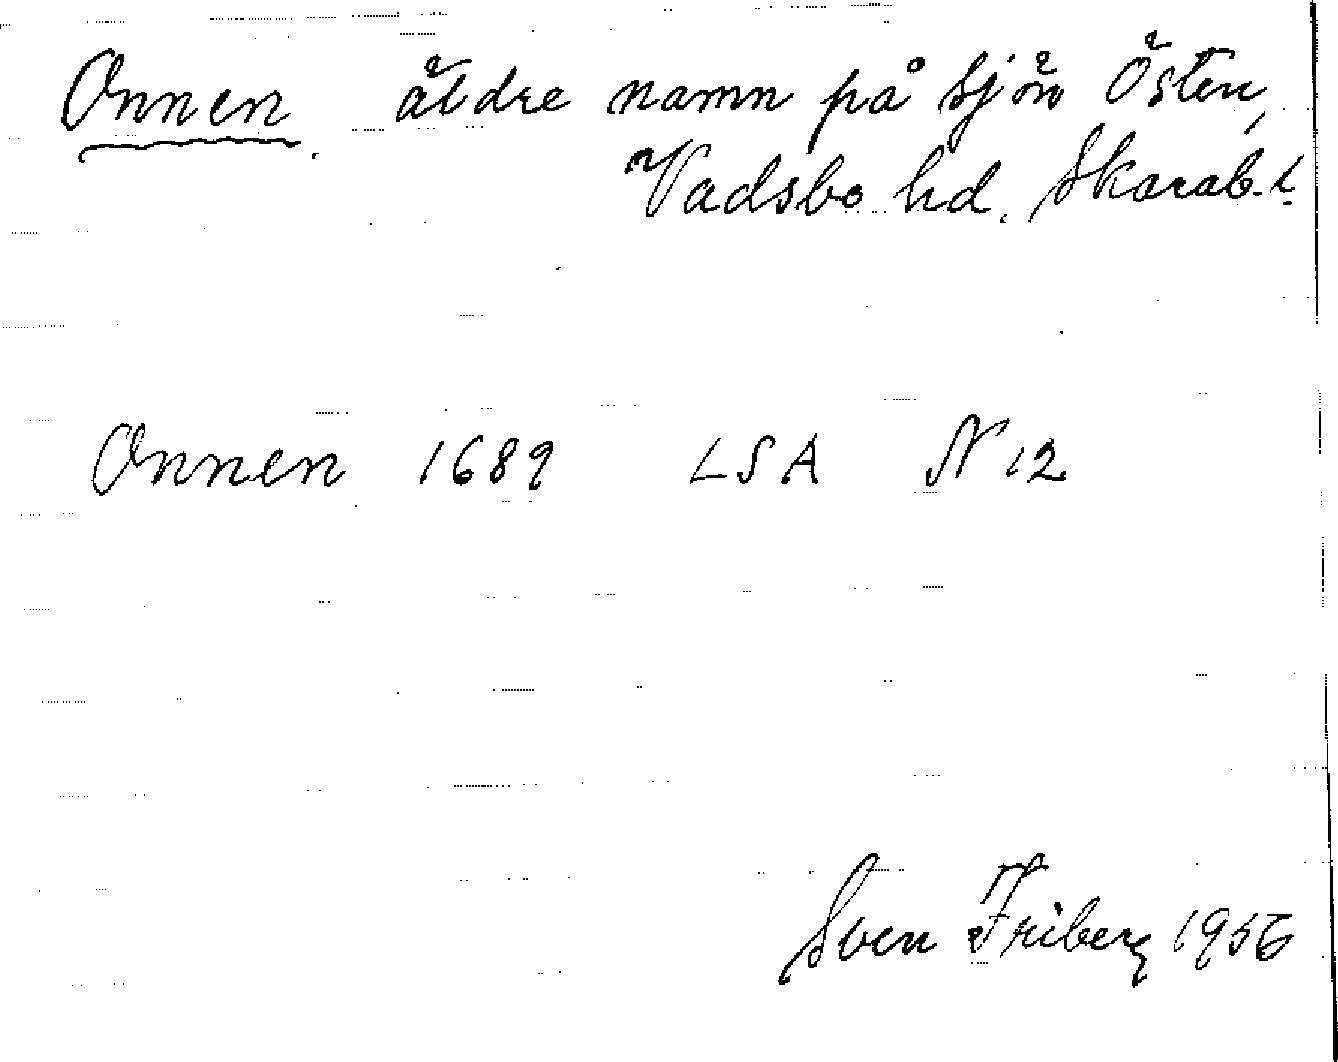 Onnen. äldre namn på sjön Östen,
Vadsbo hd. Skarab. l.
Onnen 1689 LSA N 12
Sven Friberg 1956